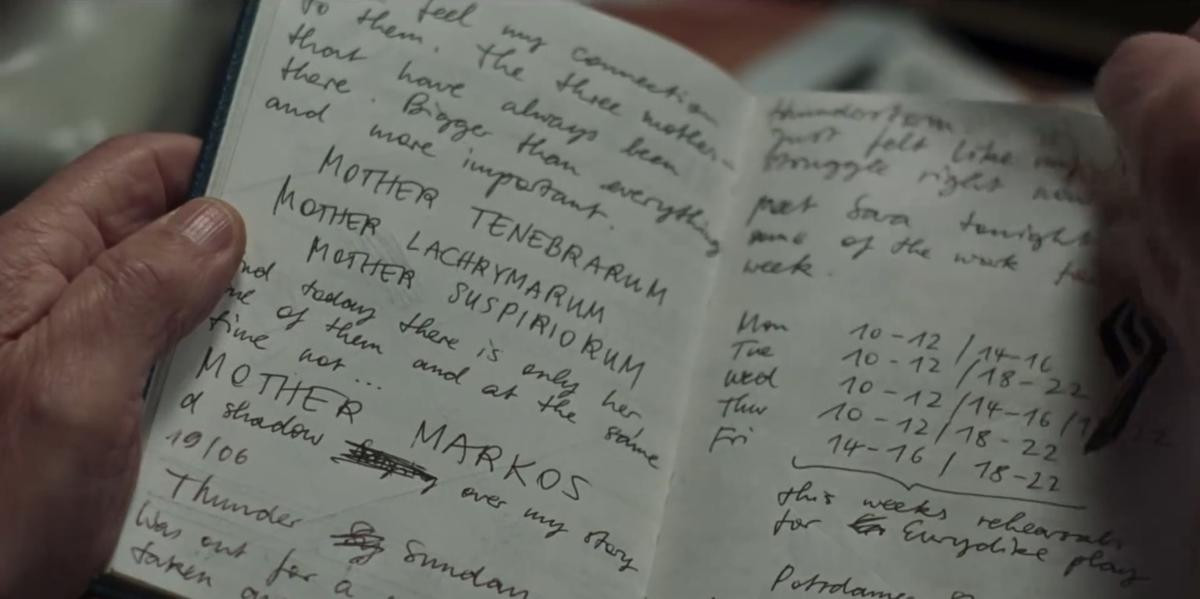 feel my connection
to them. The three mother-
that have always been
there. Bigger than everything
and more important.
MOTHER TENEBRARUM
MOTHER LACHRYMARUM
MOTHER SUSPIRIORUM
and today there is only her
one of them and at the same
time not...
MOTHER MARKOS
a shadow over my story
19/06
Thunder Sunday
Was out for a
taken
thunderstorm
Just felt like my
struggle right now
meet Sara tonight
some of the work for
week.
Mon 10-12 / 14-16
Tue 10-12 / 18-22
Wed 10-12 / 14-16 /
Thur 10-12 / 18-22
Fri 14-16 / 18-22
this weeks rehearsals
for Eurydike play